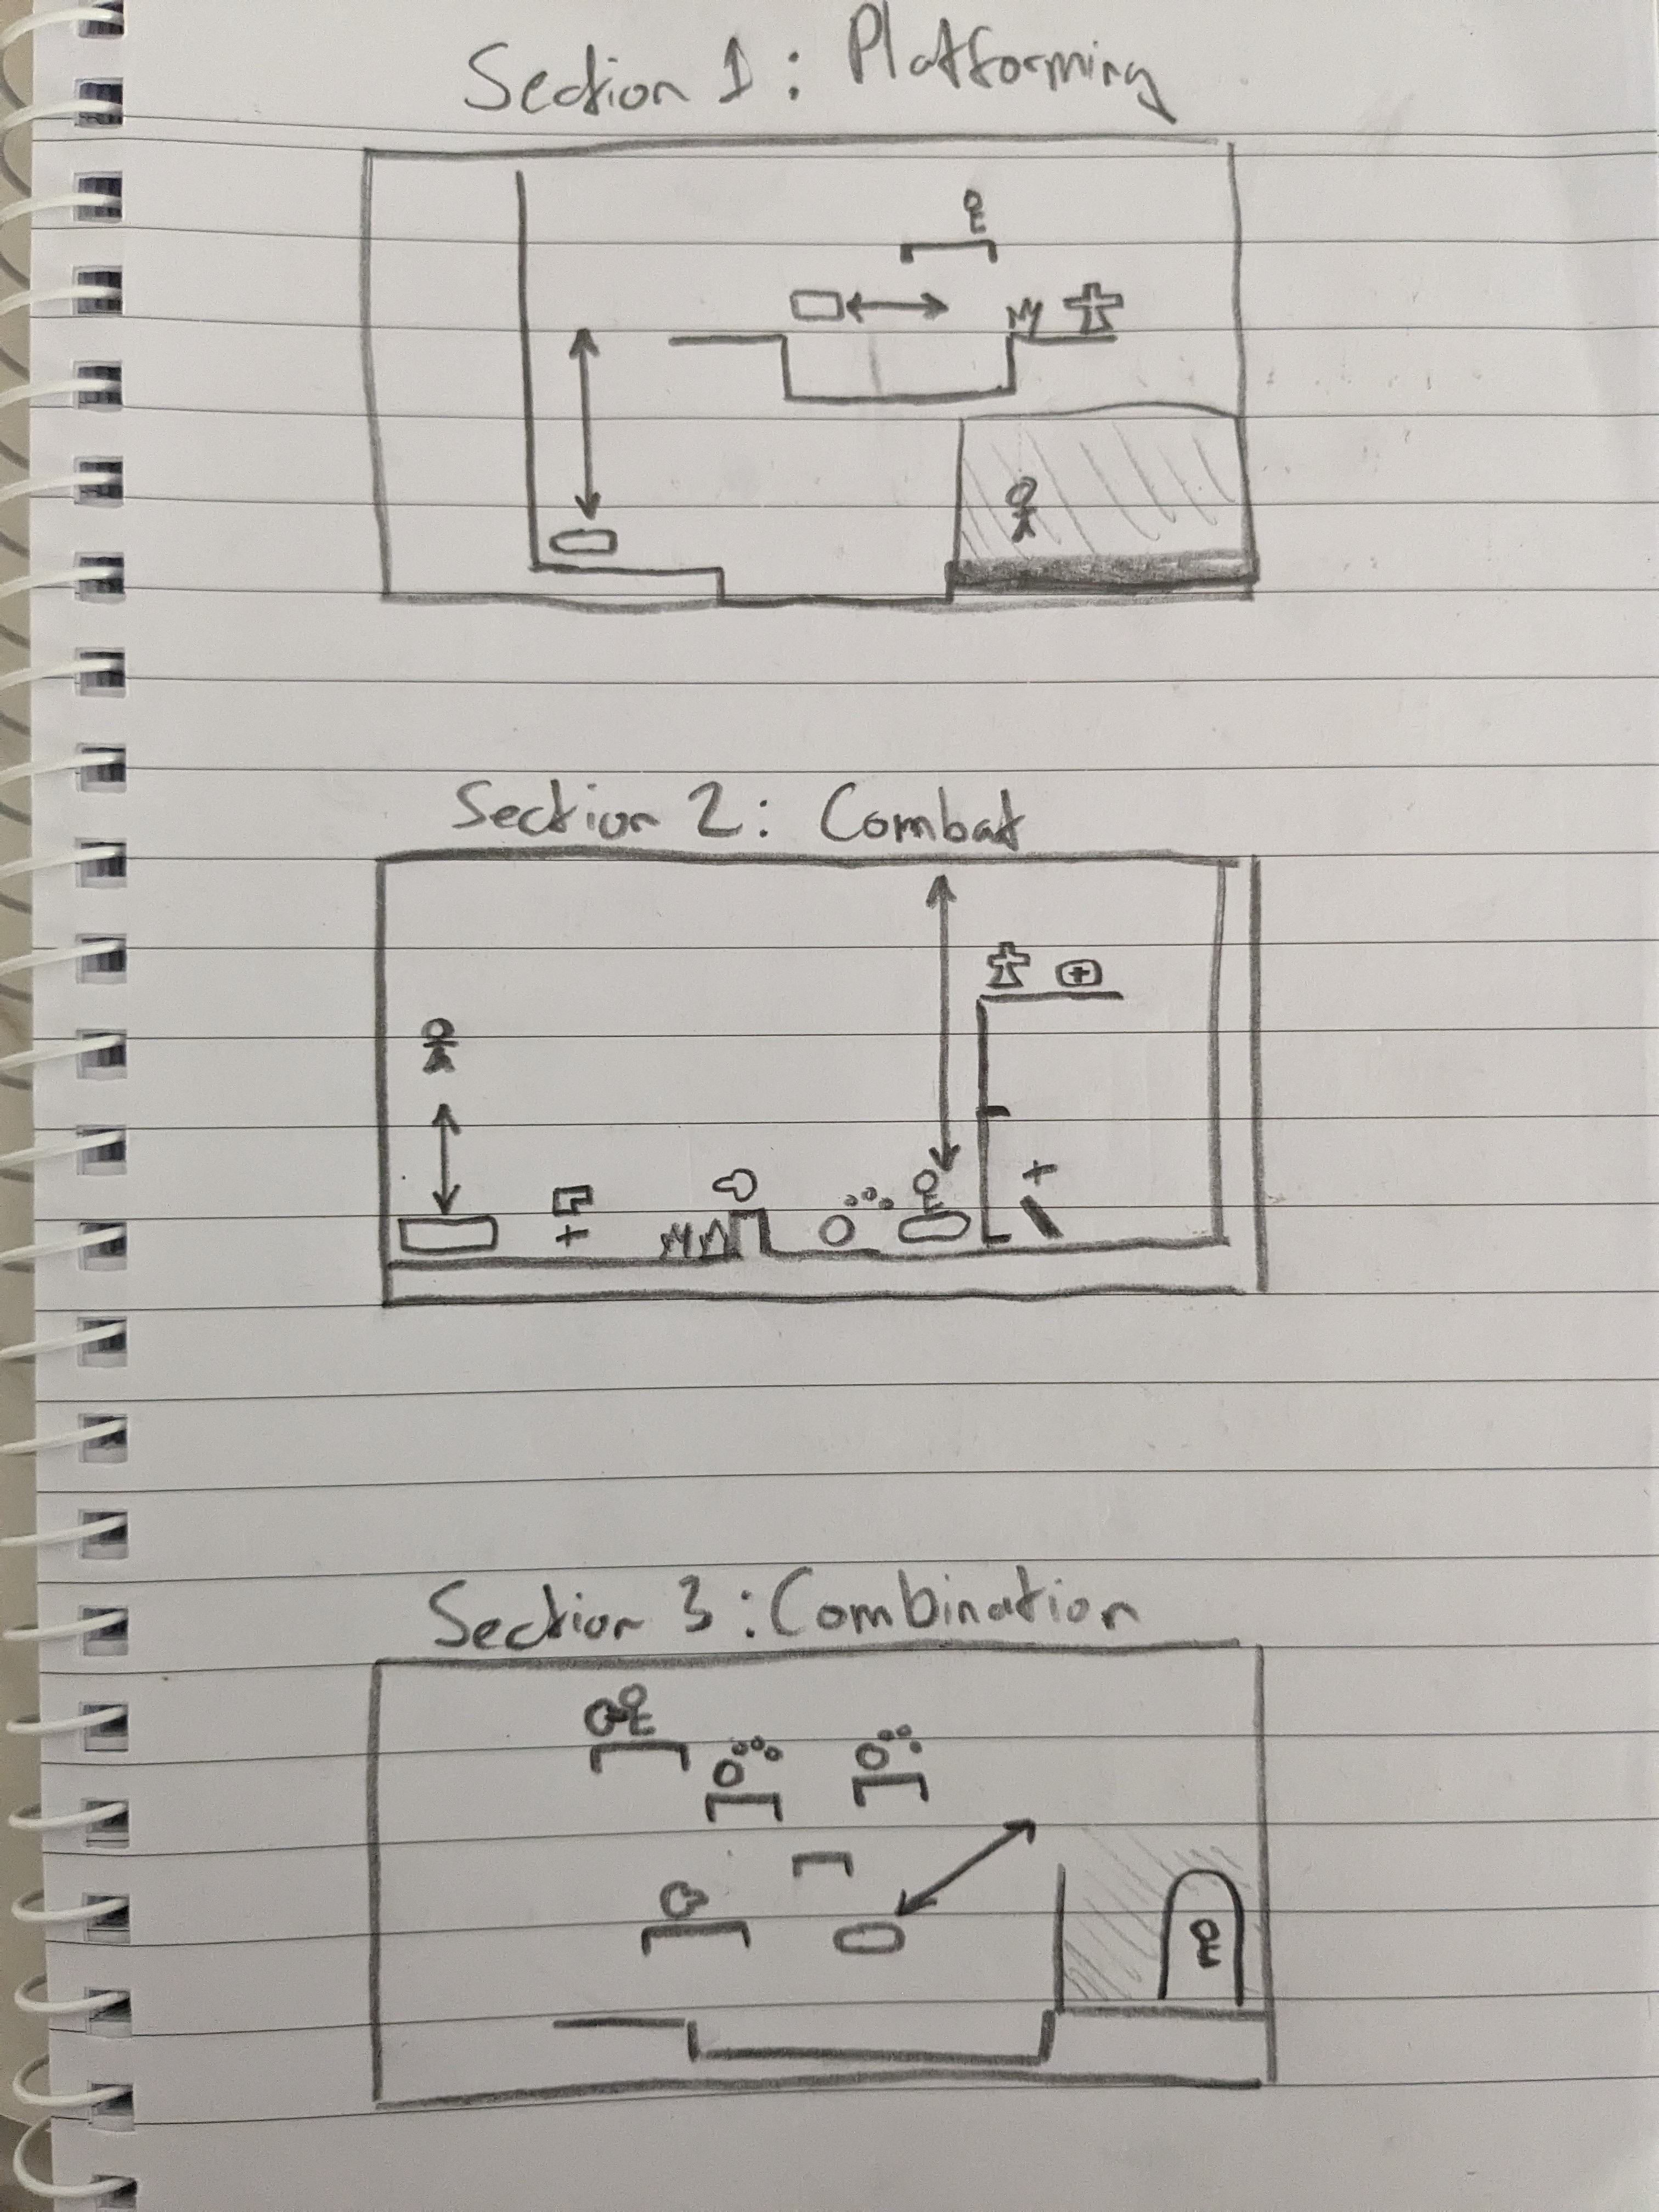 Section 1: Platforming
Section 2: Combat
Section 3: Combination